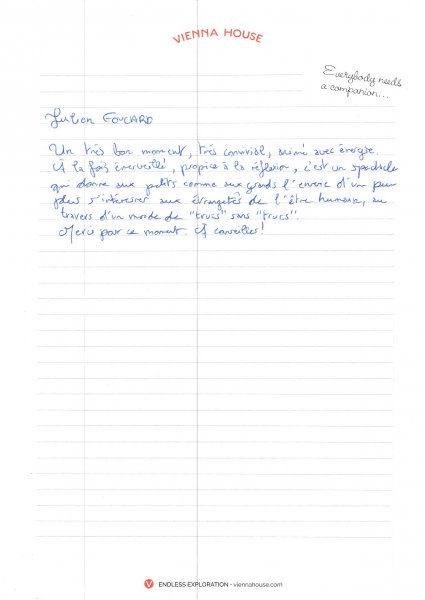 VIENNA HOUSE
Everybody needs
a companion...
Julien
Un très bon moment, très convivial, animé avec énergie.
A la fois émerveillé, propice à la réflexion, c'est un spectacle
qui donne aux petits comme aux grands l'envie d'un peu
plus s'intéresser aux étrangetés de l'être humain, au
travers d'un monde de "trucs" sans "trucs".
Merci pour ce moment. A conseiller!
V ENDLESS EXPLORATION - viennahouse.com